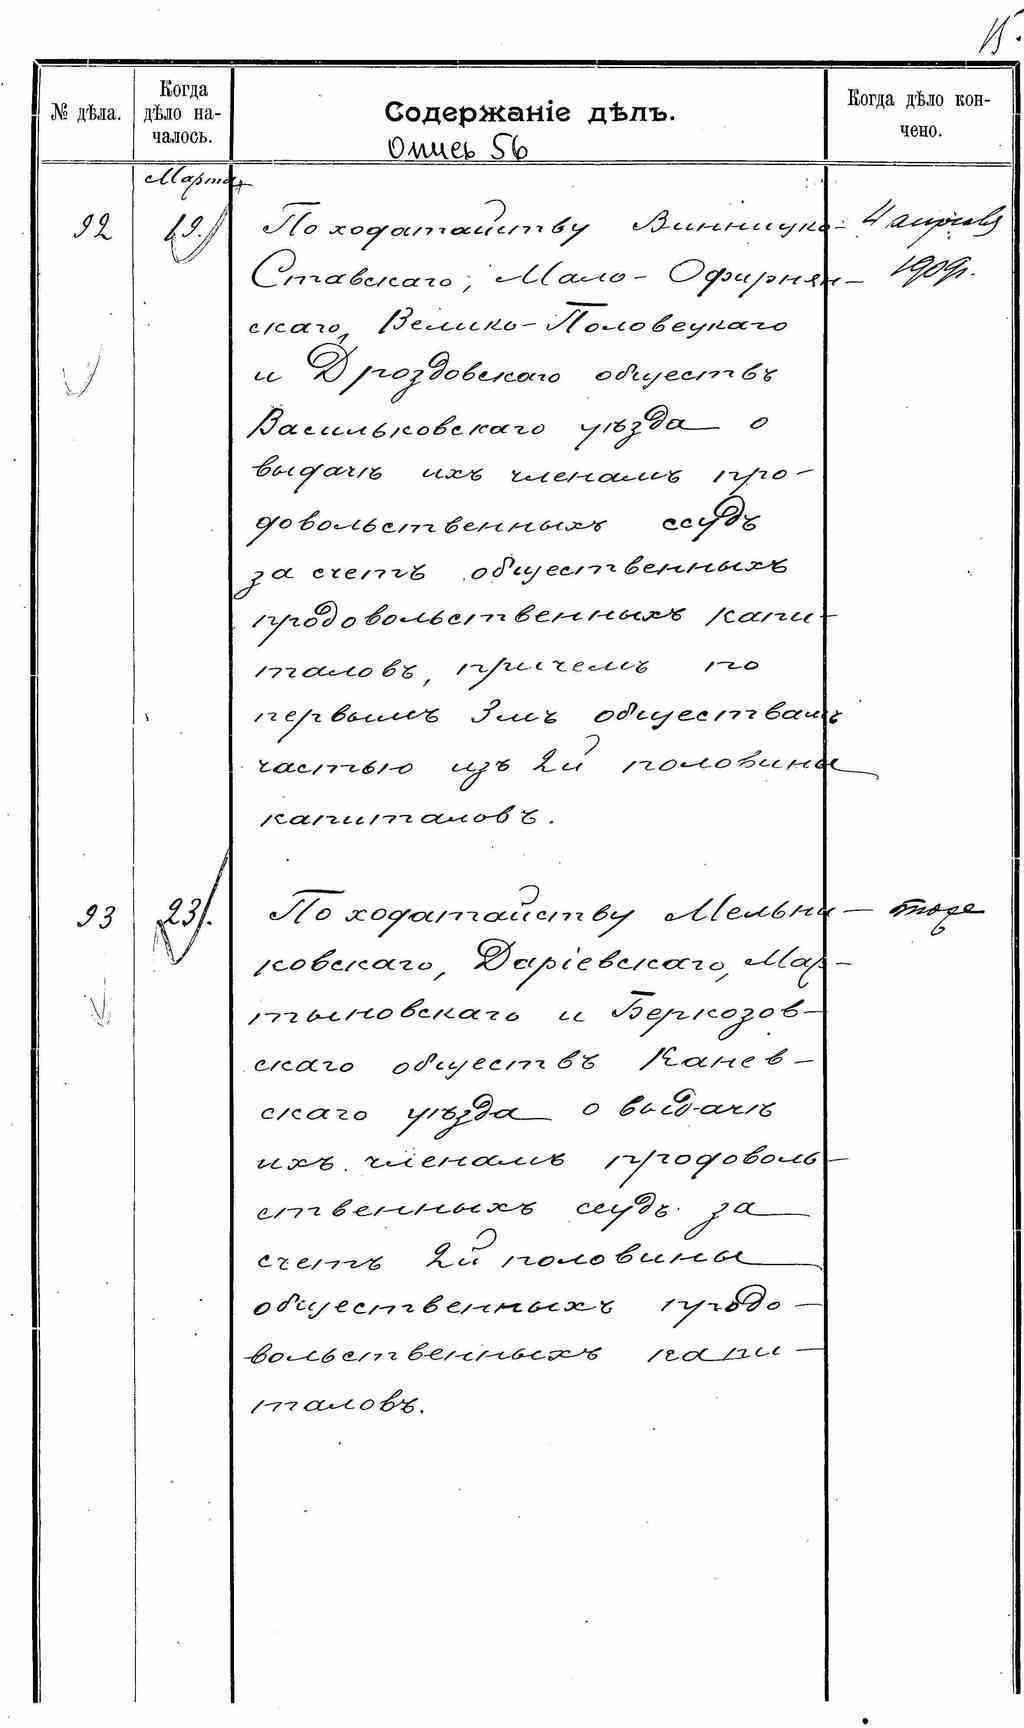 15.
№ дѣла.
Когда
дѣло на-
чалось.
Содержаніе дѣлъ.
Опись 56
Когда дѣло кон-
чено.
Марта
92
19.
По ходатайству Винницко-
Ставскаго, Мало-Офирнян-
скаго, Велико-Половецкаго
и Дроздовскаго обществъ
Васильковскаго уѣзда о
выдачѣ ихъ членамъ про-
довольственныхъ ссудъ
за счетъ общественныхъ
продовольственныхъ капи-
таловъ, причемъ по
первымъ 3мъ обществамъ
частью изъ 2й половины
капиталовъ.
4 апрѣля
1909г.
93
23.
По ходатайству Мельни-
ковскаго, Даріевскаго, Мар-
тыновскаго и Беркозов-
скаго обществъ Канев-
скаго уѣзда о выдачѣ
ихъ членамъ продоволь-
ственныхъ ссудъ за
счетъ 2й половины
общественныхъ продо-
вольственныхъ капи-
таловъ.
тоже